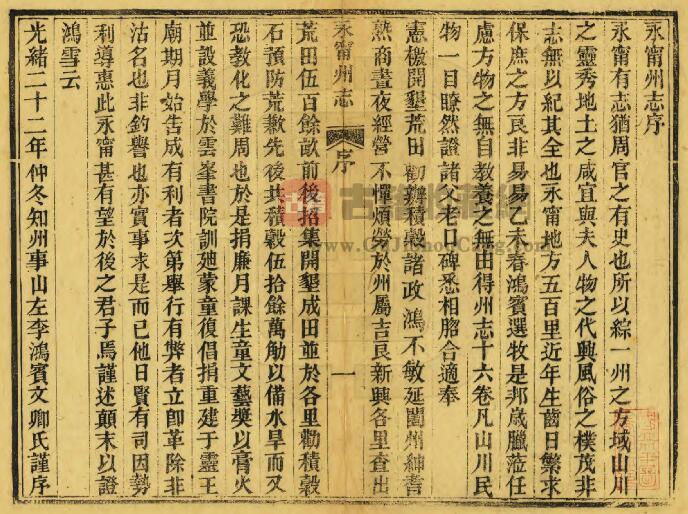 永甯州志序
永甯有志猶周官之有史也所以綜一州之方域山川
之靈秀地土之咸宜與夫人物之代興風俗之樸茂非
志無以紀其全也永甯地方五百里近年生齒日繁求
保庶之方良非易易乙未春鴻賓選牧是邦歲臘蒞任
慮方物之無自教養之無由得州志十六卷凡山川民
物一目瞭然證諸父老口碑悉相脗合適奉
憲檄開墾荒田勸辦積穀諸政鴻不敏延闔州紳耆
熟商晝夜經營不憚煩勞於州屬吉良新興各里查出
永甯州志 序 一
荒田伍百餘畝前後招集開墾成田並於各里勸積穀
石預防荒歉先後共積穀伍拾餘萬觔以備水旱而又
恐教化之難周也於是捐廉月課生童文藝奬以膏火
並設義學於雲峯書院訓廸蒙童復倡捐重建于靈王
廟期月始告成有利者次第舉行有弊者立卽革除非
沽名也非釣譽也亦實事求是而已他日賢有司因勢
利導惠此永甯甚有望於後之君子焉謹述顛末以證
鴻雪云
光緒二十二年仲冬知州事山左李鴻賓文卿氏謹序